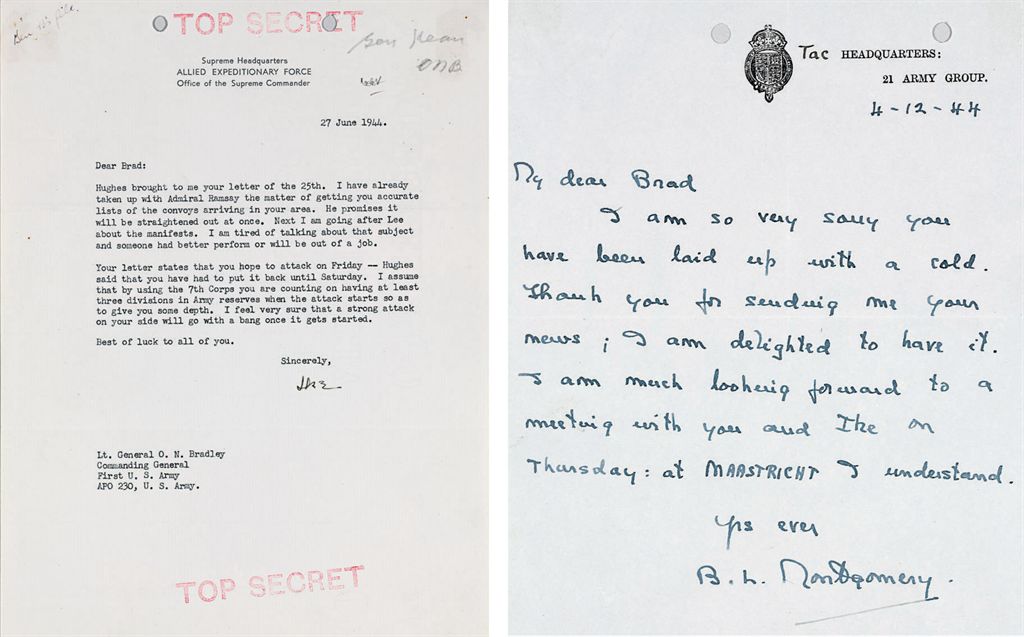 TOP SECRET
Supreme Headquarters
ALLIED EXPEDITIONARY FORCE
Office of the Supreme Commander
ONB
27 June 1944.
Dear Brad:
Hughes brought to me your letter of the 25th. I have already
taken up with Admiral Ramsay the matter of getting you accurate
lists of the convoys arriving in your area. He promises it
will be straightened out at once. Next I am going after Lee
about the manifests. I am tired of talking about that subject
and someone had better perform or will be out of a job.
Your letter states that you hope to attack on Friday -- Hughes
said that you have had to put it back until Saturday. I assume
that by using the 7th Corps you are counting on having at least
three divisions in Army reserves when the attack starts so as
to give you some depth. I feel very sure that a strong attack
on your side will go with a bang once it gets started.
Best of luck to all of you.
Sincerely,
Ike
Lt. General O. N. Bradley
Commanding General
First U. S. Army
APO 230, U. S. Army.
TOP SECRET
Tac HEADQUARTERS:
21 ARMY GROUP.
4-12-44
My dear Brad
I am so very sorry you
have been laid up with a cold.
Thank you for sending me your
news; I am delighted to have it.
I am much looking forward to a
meeting with you and Ike on
Thursday: at MAASTRICHT I understand.
Yrs ever
B. L. Montgomery.